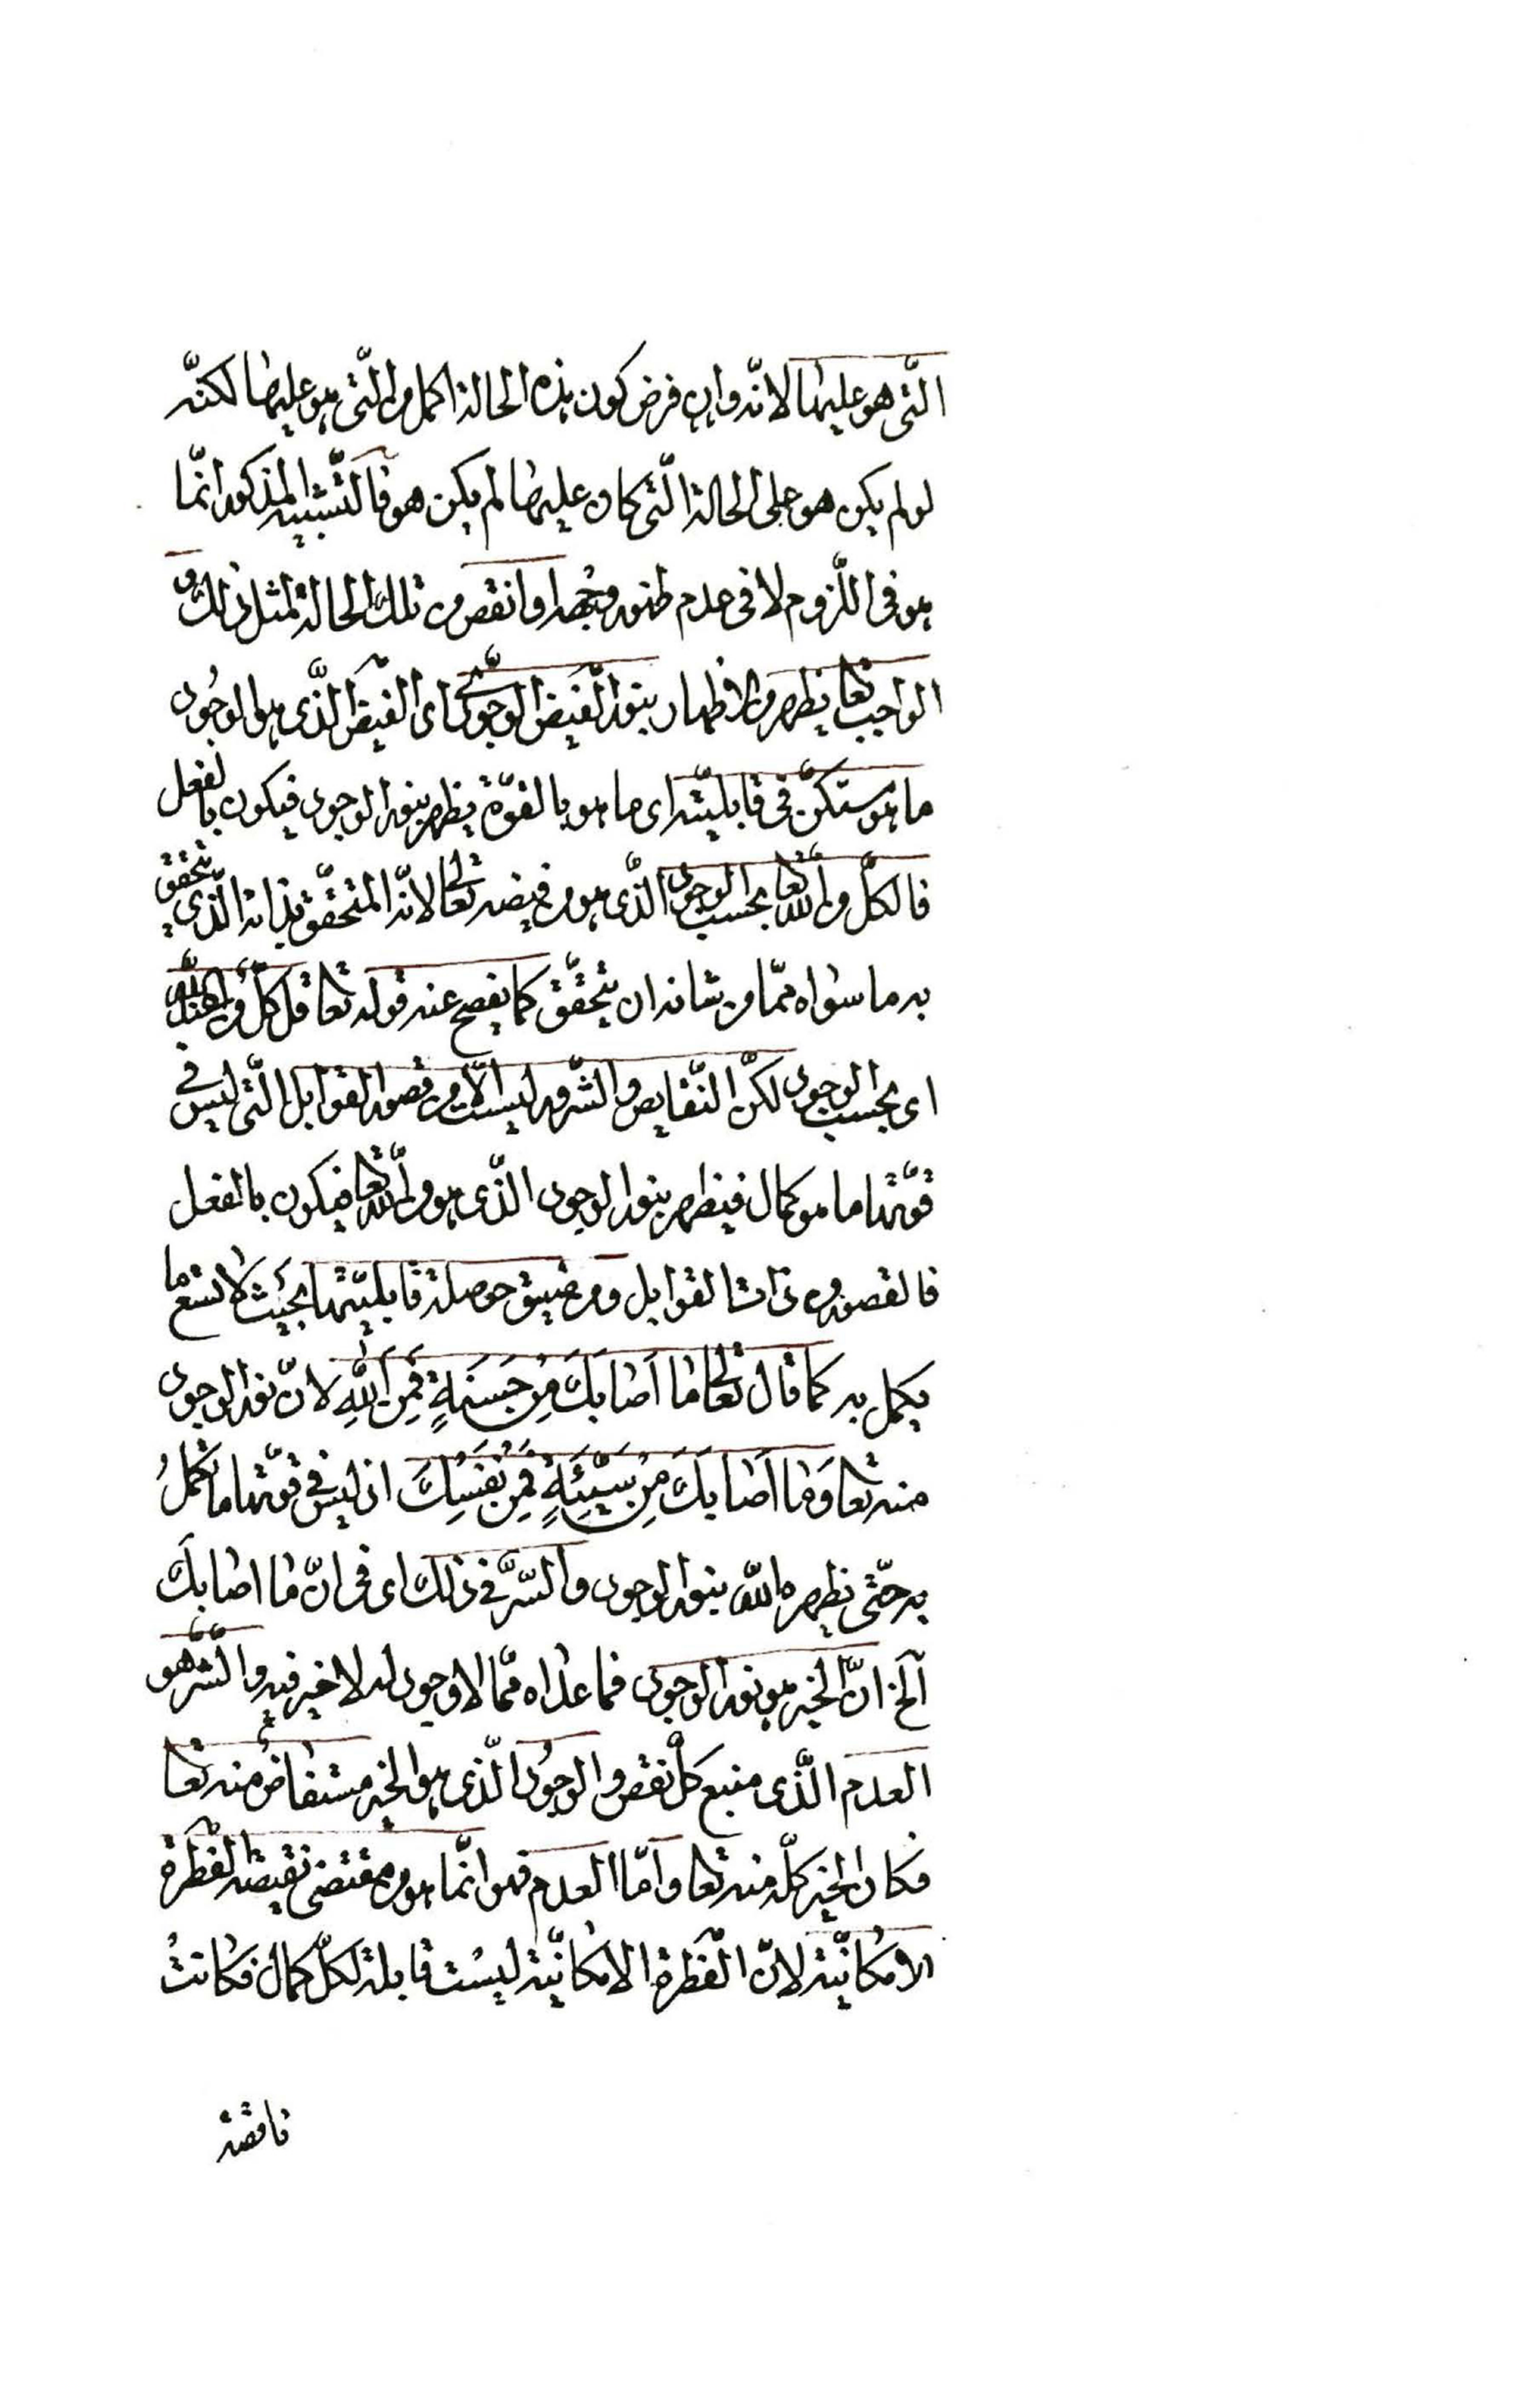 الّتى هو عليها لانّه وان فرض كون هذه الحالة اكمل من الّتى هو عليها لكنّه
لو لم يكن هو على الحالة الّتى كان عليها لم يكن هو فالتّشبيه المذكور انّما
هو فى اللّزوم لا فى عدم ظهور وجهه او انقص من تلك الحالة لمثل ذلك و
الواجب تعا يظهر من الاظهار بنور الفيض الوجودىّ اى الفيض الّذى هو الوجود
ما هو مستكنّ فى قابليّته اى ما هو بالقوّة يظهر بنور الوجود فيكون بالفعل
فالكلّ من اللّه تعا بحسب الوجود الّذى هو من فيضه تعالى لانّه المتحقّق بذاته الّذى يتحقق
به ما سواه ممّا من شانه ان يتحقّق كما يفصح عنه قوله تعا قل كلّ من عند اللّه
اى بحسب الوجود لكنّ النّقايص والشّرور ليست الّا من قصور القوابل الّتى ليس فى
قوّتها ما هو كمال فيظهر بنور الوجود الّذى هو من اللّه تعا فيكون بالفعل
فالقصور من ذات القوابل ومن ضيق حوصلة قابليّتها بحيث لا تسع ما
يكمل به كما قال تعالى ما اَصابَكَ مِنْ حَسَنَةٍ فَمِنَ اللّٰهِ لانّ نور الوجود
منه تعا وَما اَصابَكَ مِنْ سَيِّئَةٍ فَمِنْ نَفْسِكَ اذ ليس فى قوّتها ما تكملُ
به حتّى يظهره اللّه بنور الوجود والسّرّ فى ذلك اى فى انّ ما اصابكَ
آلخ انّ الخير هو نور الوجود فما عداه ممّا لا وجود له لا خير فيه والشّرّ هو
العدم الّذى منبع كلّ نقص والوجود الّذى هو الخير مستفاضٌ منه تعا
فكان الخير كلّه منه تعا وامّا العدم فهو انّما هو من مقتضى نقيصة الفطرة
الامكانيّة لانّ الفطرة الامكانيّة ليست قابلة لكلّ كمال فكانت
ناقصة